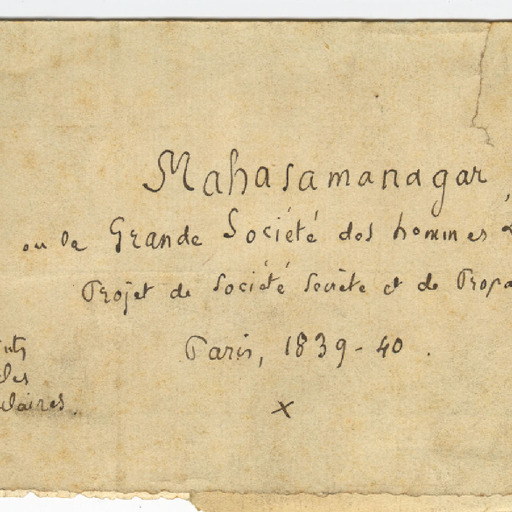 Mahasamanagar,
ou la Grande Société des hommes
Projet de Société Secrète et de Propa
Paris, 1839-40.
x